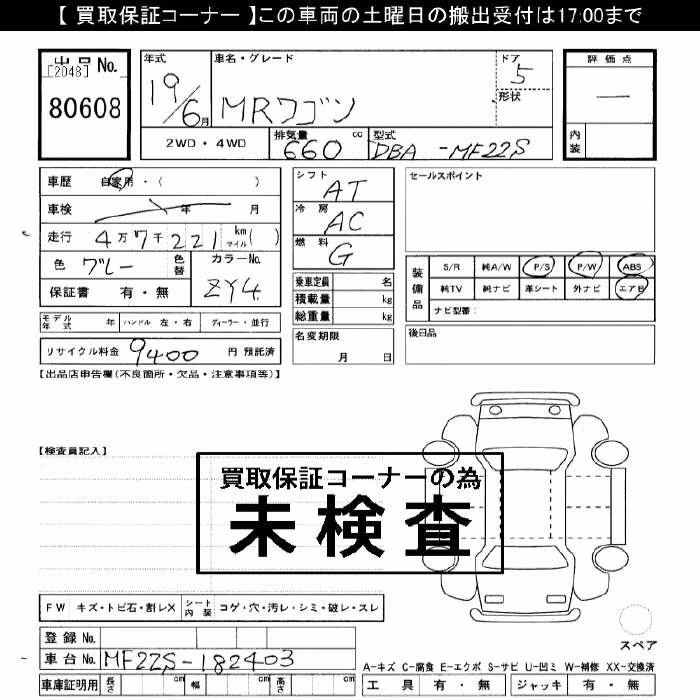 【 買取保証コーナー 】この車両の土曜日の搬出受付は17:00まで
出品 No.
[2048]
80608
年式
19/6月
車名・グレード
MRワゴン
ドア
5
形状
評価点
―
内装
2WD・4WD
排気量 660 cc
型式 DBA-MF22S
車歴 自家用・( )
車検 年 月
走行 4万7千221 km マイル( )
色 グレー 色替
カラーNo. ZY4
保証書 有・無
モデル年式 年 ハンドル 左・右 ディーラー・並行
リサイクル料金 9400 円 預託済
シフト AT
冷房 AC
燃料 G
乗車定員 名
積載量 kg
総重量 kg
名変期限
月 日
セールスポイント
装備品
S/R 純A/W P/S P/W ABS
純TV 純ナビ 革シート 外ナビ エアB
ナビ型番:
後日品
【出品店申告欄(不良箇所・欠品・注意事項等)】
【検査員記入】
買取保証コーナーの為
未検査
FW キズ・トビ石・割レX シート内装 コゲ・穴・汚レ・シミ・破レ・スレ
登録 No.
車台 No. MF22S-182403
車庫証明用 長さ cm 幅 cm 高さ cm
スペア
A-キズ C-腐食 E-エクボ S-サビ U-凹ミ W-補修 XX-交換済
工具 有・無 ジャッキ 有・無